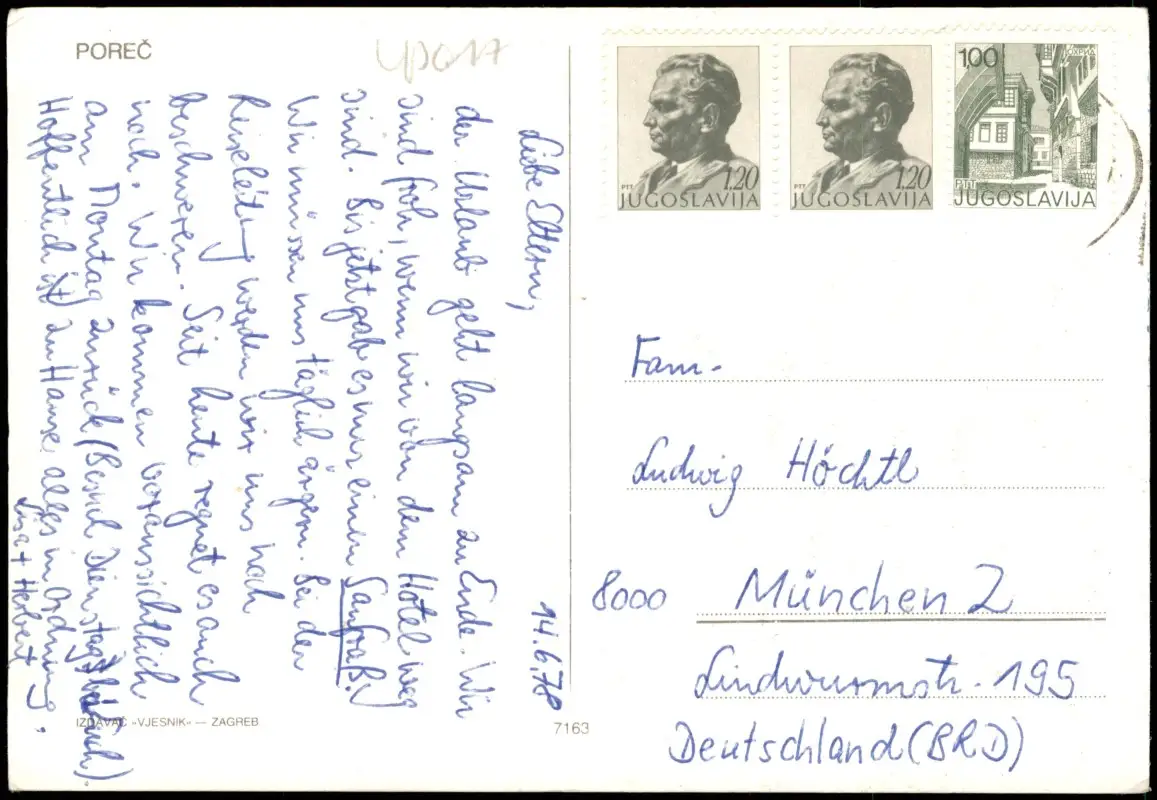 POREČ
14.6.78
Liebe Eltern,
der Urlaub geht langsam zu Ende. Wir
sind froh, wenn wir von dem Hotel weg
sind. Bis jetzt gab es nur einen Saufraß!
Wir müssen uns täglich ärgern. Bei der
Reiseleitung werden wir uns noch
beschweren. Seit heute regnet es auch
noch. Wir kommen voraussichtlich
am Montag zurück (Besuch Dienstag).
Hoffentlich ist zu Hause alles in Ordnung.
Lisa + Herbert
IZDAVAČ »VJESNIK« — ZAGREB
7163
PTT
1,20
JUGOSLAVIJA
PTT
1,20
JUGOSLAVIJA
1,00
ОХРИД
PTT
JUGOSLAVIJA
Fam.
Ludwig Höchtl
8000 München 2
Lindwurmstr. 195
Deutschland (BRD)